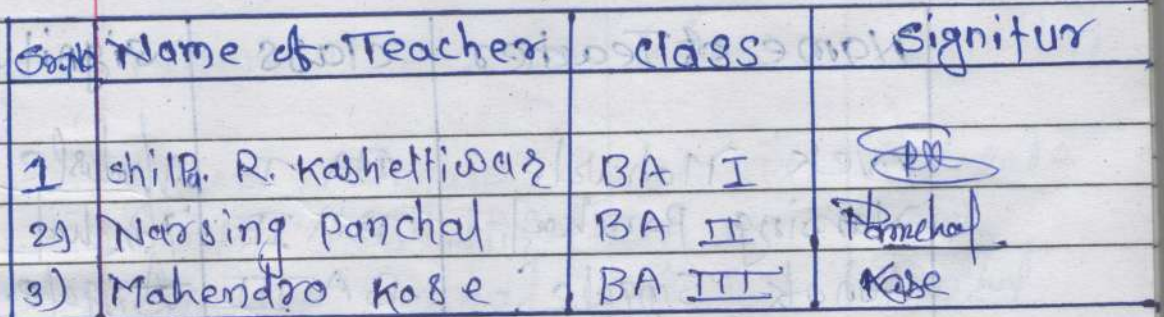 Sr.No Name of Teacher class signitur
1 Shilpa. R. Kashettiwar BA I
2) Narsing Panchal BA II Panchal
3) Mahendro Kose BA III Kose